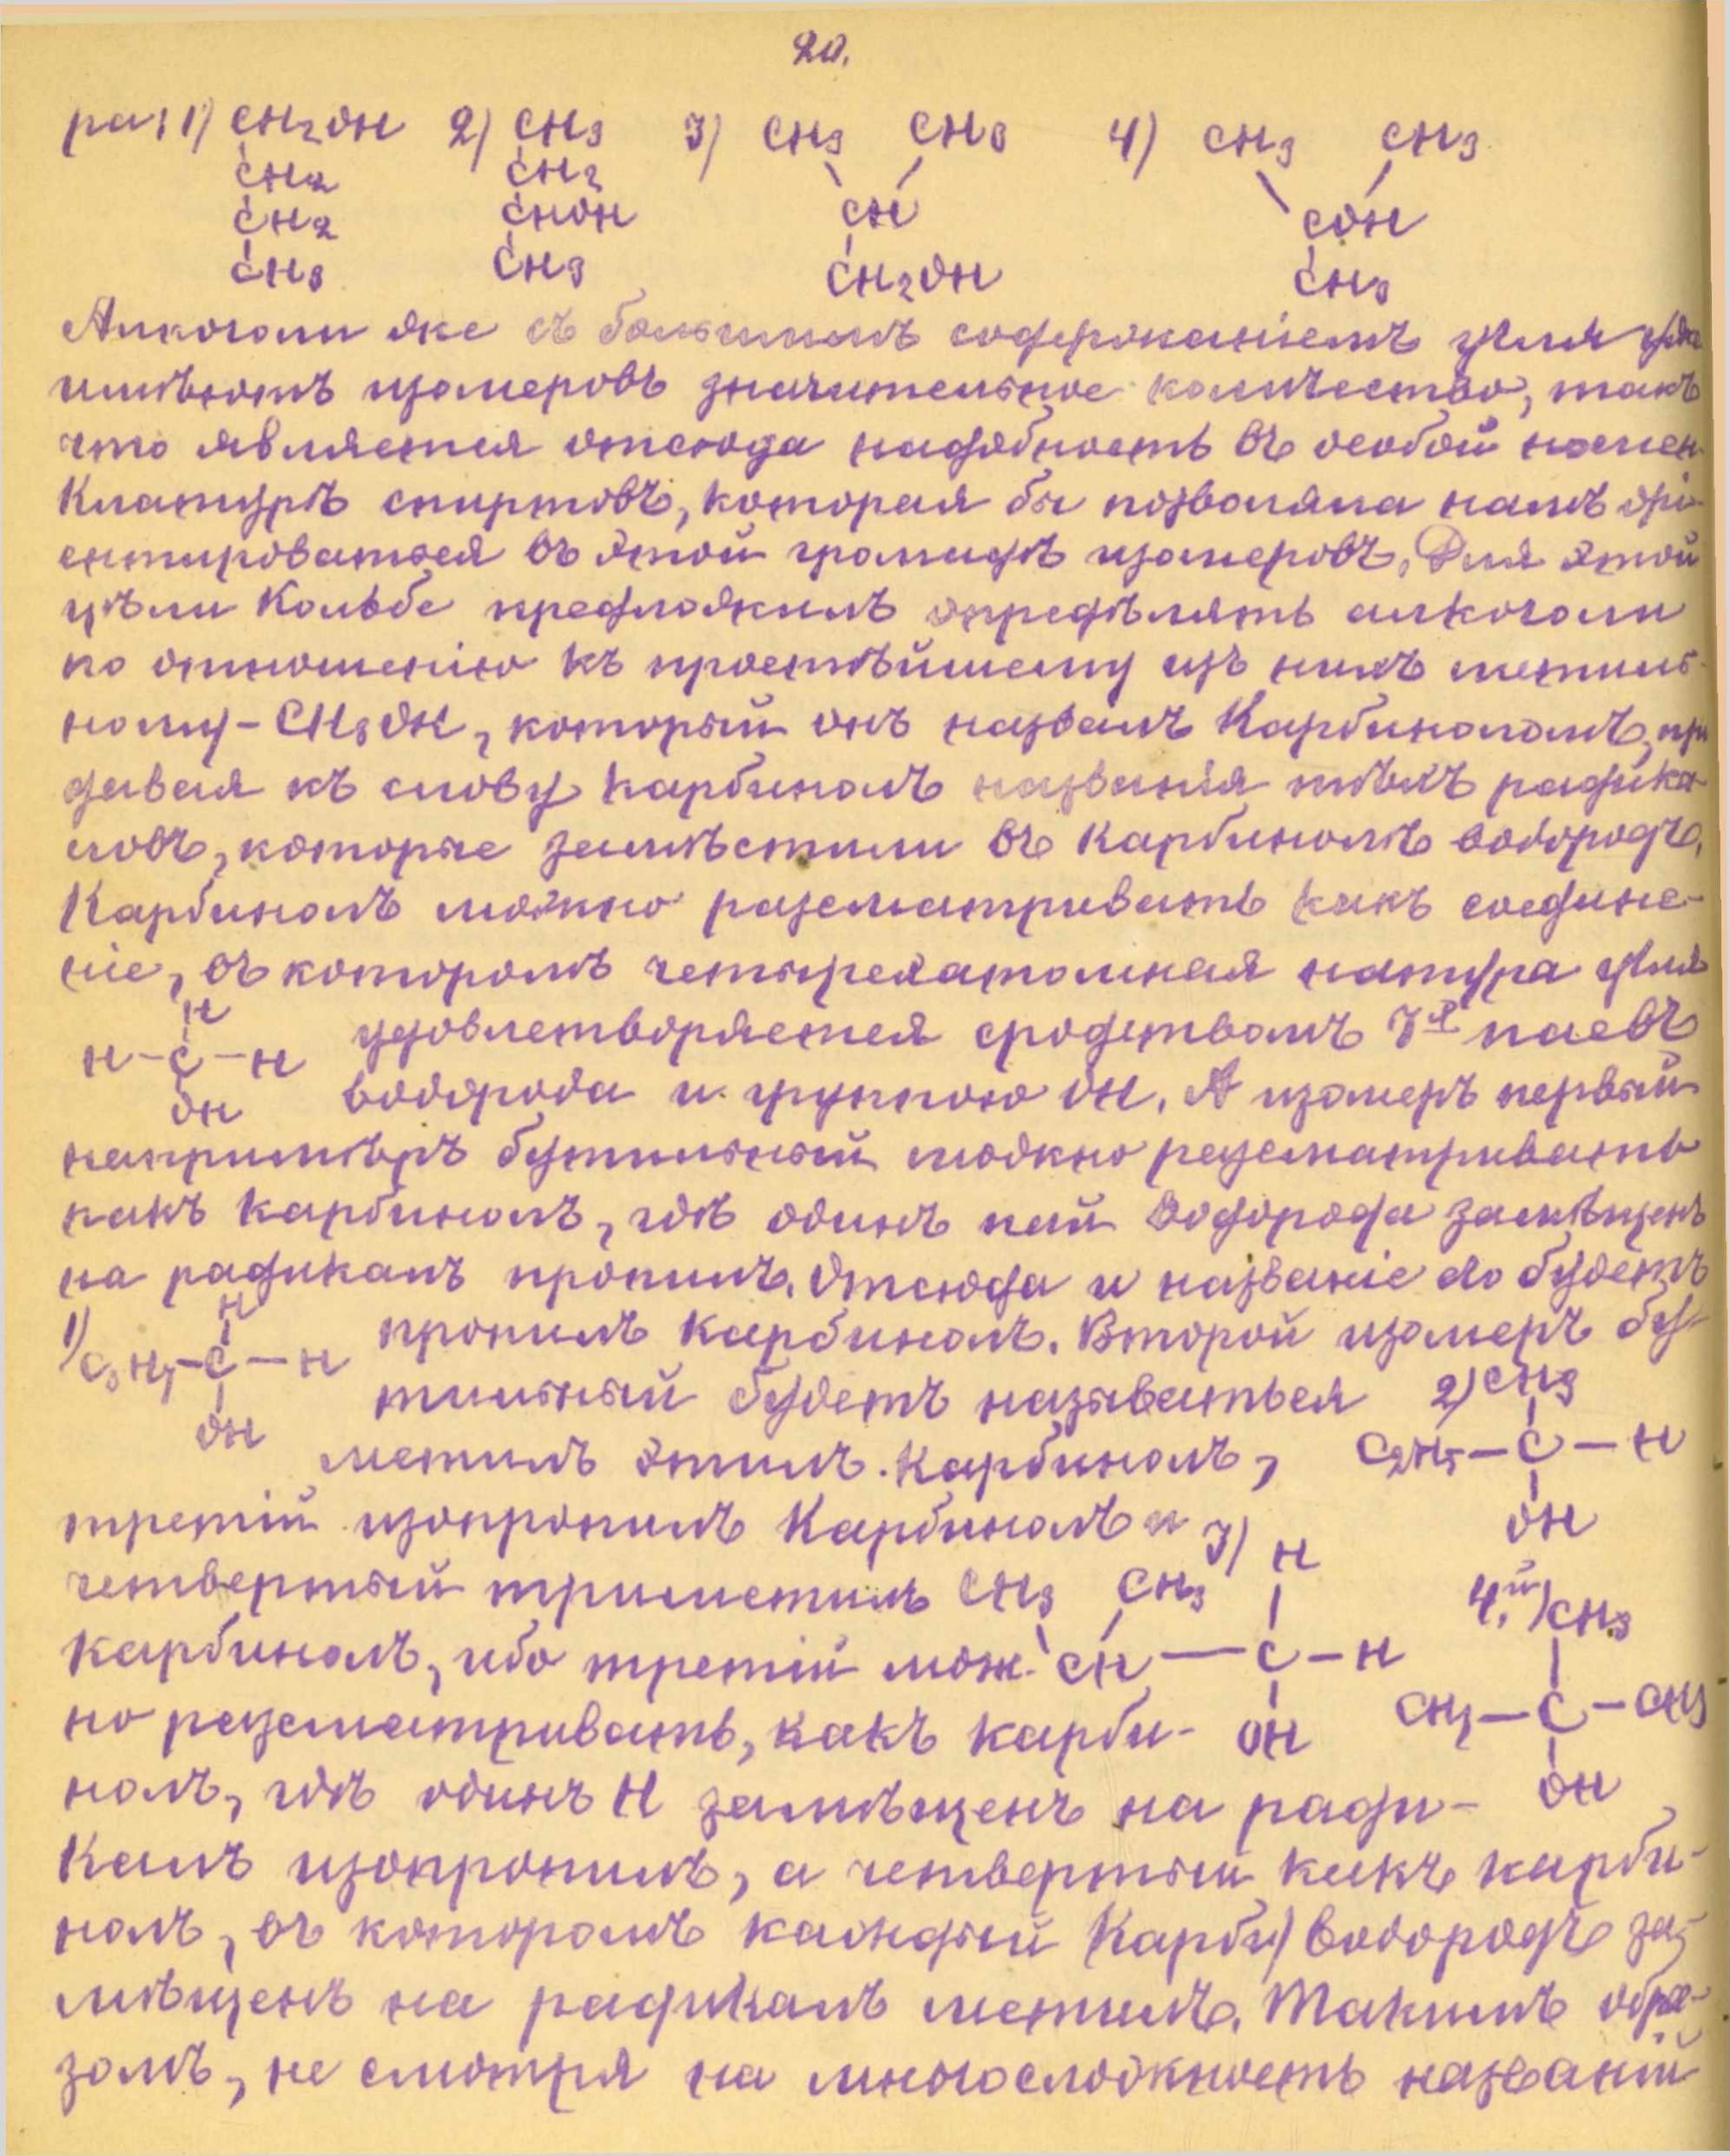 20.
ра: 1) CH2OH 2) CH3 3) CH3 CH3 4) CH3 CH3
CH2 CH2 CH COH
CH2 CHOH CH2OH CH3
CH3 CH3
Алкоголи же съ большимъ содержаніемъ угля
имѣютъ изомеровъ значительное количество, такъ
что является отсюда надобность въ особой номен-
клатурѣ спиртовъ, которая бы позволяла намъ орі-
ентироваться въ этой громадѣ изомеровъ. Для этой
цѣли Кольбе предложилъ опредѣлять алкоголи
по отношенію къ простѣйшему изъ нихъ метиль-
ному - CH3OH, который онъ назвалъ Карбиноломъ, при
давая къ слову карбинолъ названія тѣхъ радика-
ловъ, которые замѣстили въ Карбинолѣ водородъ.
Карбинолъ можно разсматривать какъ соедине-
ніе, въ которомъ четырехатомная натура угля
H
H-C-H удовлетворяется сродствомъ 3х паевъ
OH водорода и группою OH. А изомеръ первый
напримѣръ бутильный можно разсматривать
какъ карбинолъ, гдѣ одинъ пай водорода замѣщенъ
на радикалъ пропилъ. Отсюда и названіе его будетъ
1) H
C3H7-C-H пропилъ карбинолъ. Второй изомеръ бу-
тильный будетъ называться 2) CH3
OH метилъ этилъ. карбинолъ, C2H5-C-H
третій изопропилъ Карбинолъ и 3) H OH
четвертый триметилъ CH3 CH3 4.й) CH3
карбинолъ, ибо третій мож- CH-C-H
но разсматривать, какъ карби- OH CH3-C-CH3
нолъ, гдѣ одинъ H замѣщенъ на ради- OH
калъ изопропилъ, а четвертый какъ карби-
нолъ, въ которомъ каждый (Карби) водородъ за-
мѣщенъ на радикалъ метилъ. Такимъ обра-
зомъ, не смотря на многосложность названій